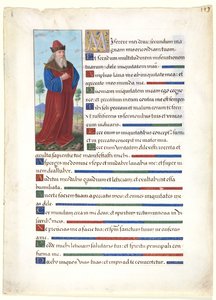 Miserere mei deus: secundum
magnam misericordiam tuam.
Et secundum multitudinem miserationum
tuarum: dele iniquitatem meam.
Amplius lava me ab iniquitate mea: et
a peccato meo munda me.
Quoniam iniquitatem meam ego cogno
sco: et peccatum meum contra me est semper
Tibi soli peccavi et malum coram te feci:
ut iustificeris in sermonibus tuis et vincas
cum iudicaris.
Ecce enim in iniquitatibus conceptus sum:
et in peccatis concepit me mater mea.
Ecce enim veritatem dilexisti: incerta et
occulta sapientie tue manifestasti michi.
Asperges me domine hysopo et mundabor: lavabis me: et super ni
vem dealbabor.
Auditui meo dabis gaudium et leticiam: et exultabunt ossa
humiliata.
Averte faciem tuam a peccatis meis: et omnes iniquitates
meas dele.
Cor mundum crea in me deus: et spiritum rectum innova in vis
ceribus meis.
Ne proicias me a facie tua: et spiritum sanctum tuum ne auferas
a me.
Redde michi leticiam salutaris tui: et spiritu principali con
firma me.
Docebo iniquos vias tuas: et impii ad te convertentur.